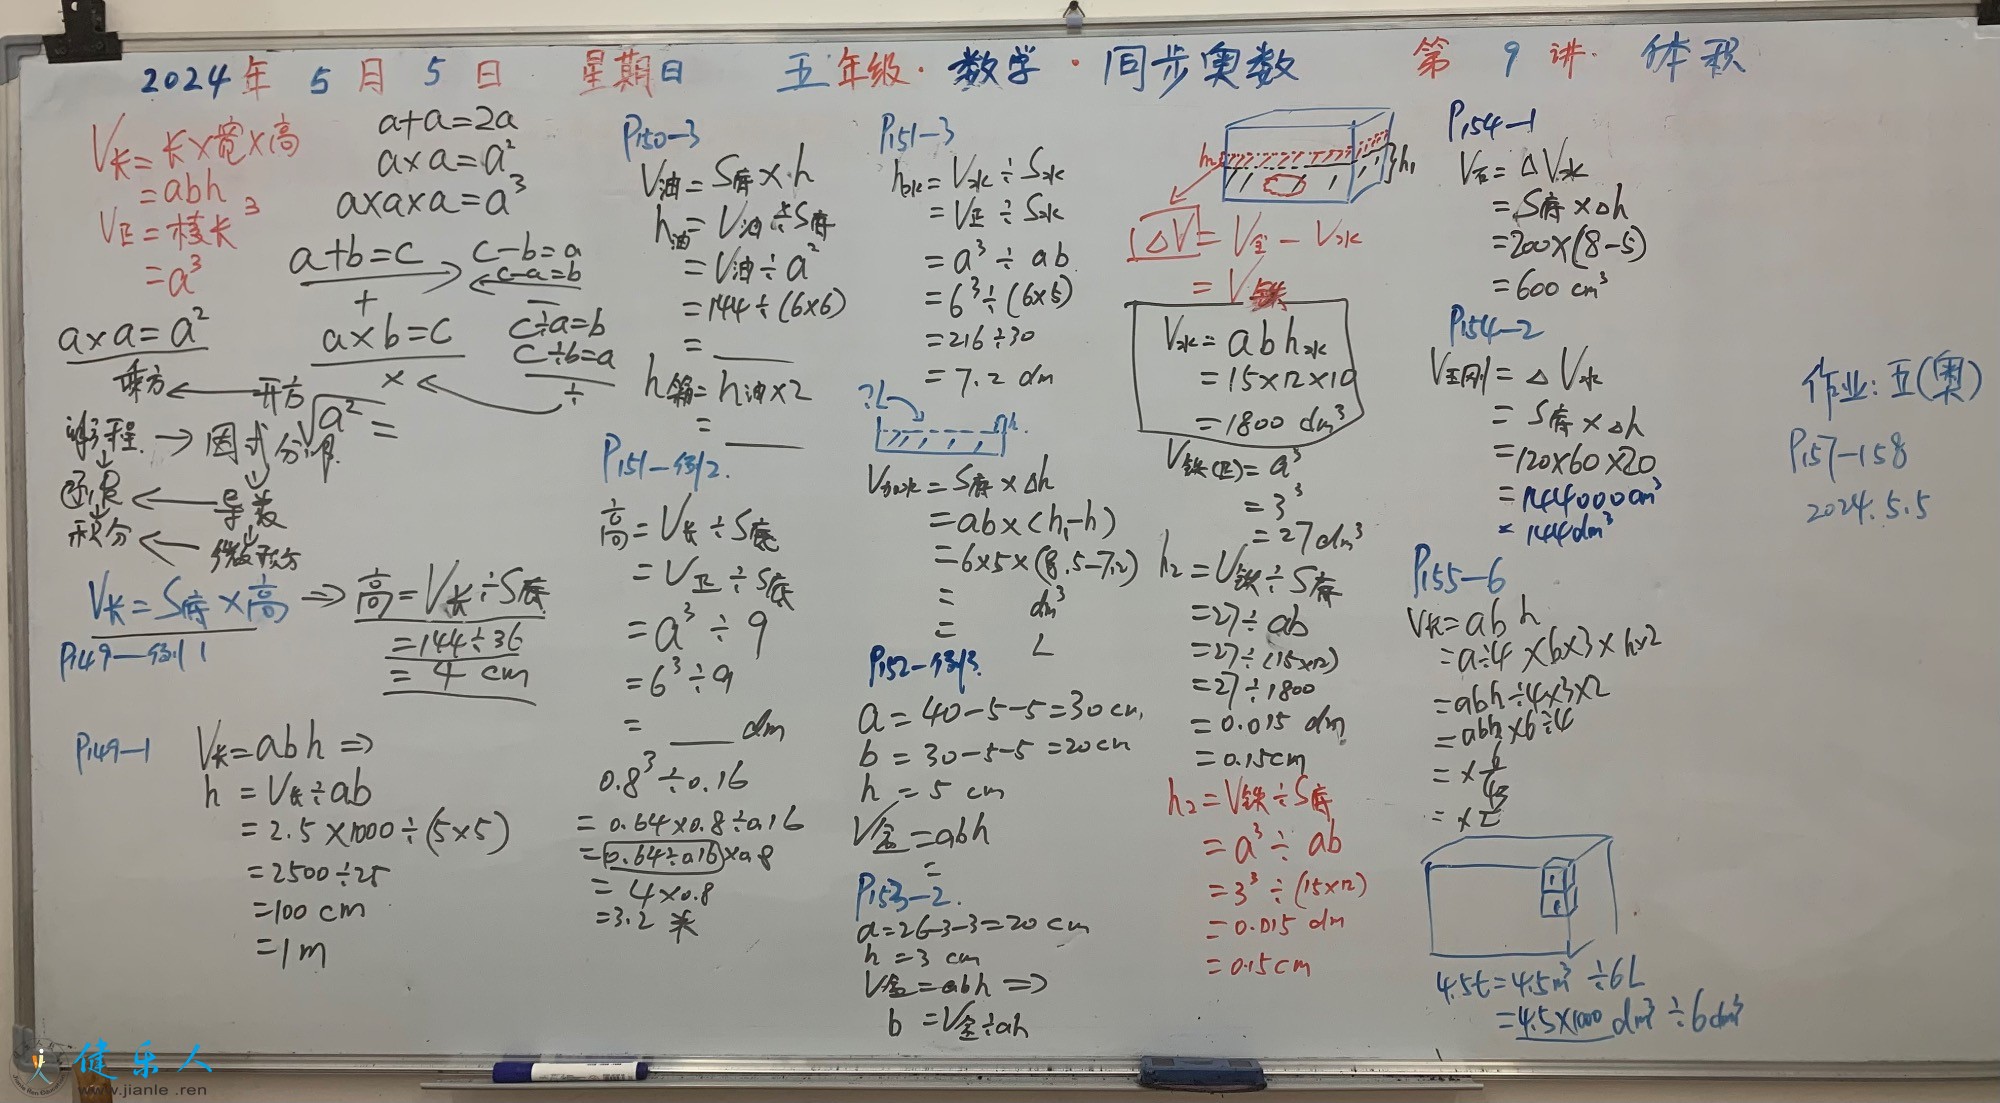 2024年 5月 5日 星期日 五年级·数学·同步奥数 第 9 讲· 体积
V长=长×宽×高
=abh
V正=棱长³
=a³
a+a=2a
a×a=a²
a×a×a=a³
a+b=c
+
c-b=a
c-a=b
—
a×a=a²
乘方
a×b=c
×
c÷a=b
c÷b=a
÷
开方
√a² =
解方程 → 因式分解
还原 ← 导数
积分 ← 微积分
V长=S底×高 ⇒ 高=V长÷S底
=144÷36
=4 cm
P149—例1
P149—1
V长=abh ⇒
h =V长÷ab
=2.5×1000÷(5×5)
=2500÷25
=100 cm
=1m
P150—3
V油=S底×h
h油=V油÷S底
=V油÷a²
=144÷(6×6)
= ____
h箱=h油×2
= ____
P151—例2.
高=V长÷S底
=V正÷S底
=a³÷9
=6³÷9
= ____ dm
0.8³÷0.16
=0.64×0.8÷0.16
=0.64÷0.16×0.8
=4×0.8
=3.2 米
P151—3
h水=V水÷S水
=V正÷S水
=a³÷ab
=6³÷(6×5)
=216÷30
=7.2 dm
?L
h
V加水=S底×△h
=ab×(h₁-h)
=6×5×(8.5-7.2)
= dm³
= L
P152—例3.
a=40-5-5=30cm
b=30-5-5=20cm
h=5 cm
V盒=abh
=
P153—2.
a=26-3-3=20 cm
h=3 cm
V盒=abh ⇒
b =V盒÷ah
h₂
h₁
△V=V全-V水
=V铁
V水=abh水
=15×12×10
=1800 dm³
V铁(正)=a³
=3³
=27dm³
h₂=V铁÷S底
=27÷ab
=27÷(15×12)
=27÷1800
=0.015 dm
=0.15cm
h₂=V铁÷S底
=a³÷ab
=3³÷(15×12)
=0.015 dm
=0.15cm
P154—1
V石=△V水
=S底×△h
=200×(8-5)
=600cm³
P154—2
V金刚=△V水
=S底×△h
=120×60×20
=144000cm³
=144dm³
P155—6
V长=abh
=a÷4×b×3×h×2
=abh÷4×3×2
=abh×6÷4
4.5t=4.5m³÷6L
=4.5×1000dm³÷6dm³
作业:五(奥)
P157—158
2024.5.5
健乐人
www.jianle.ren